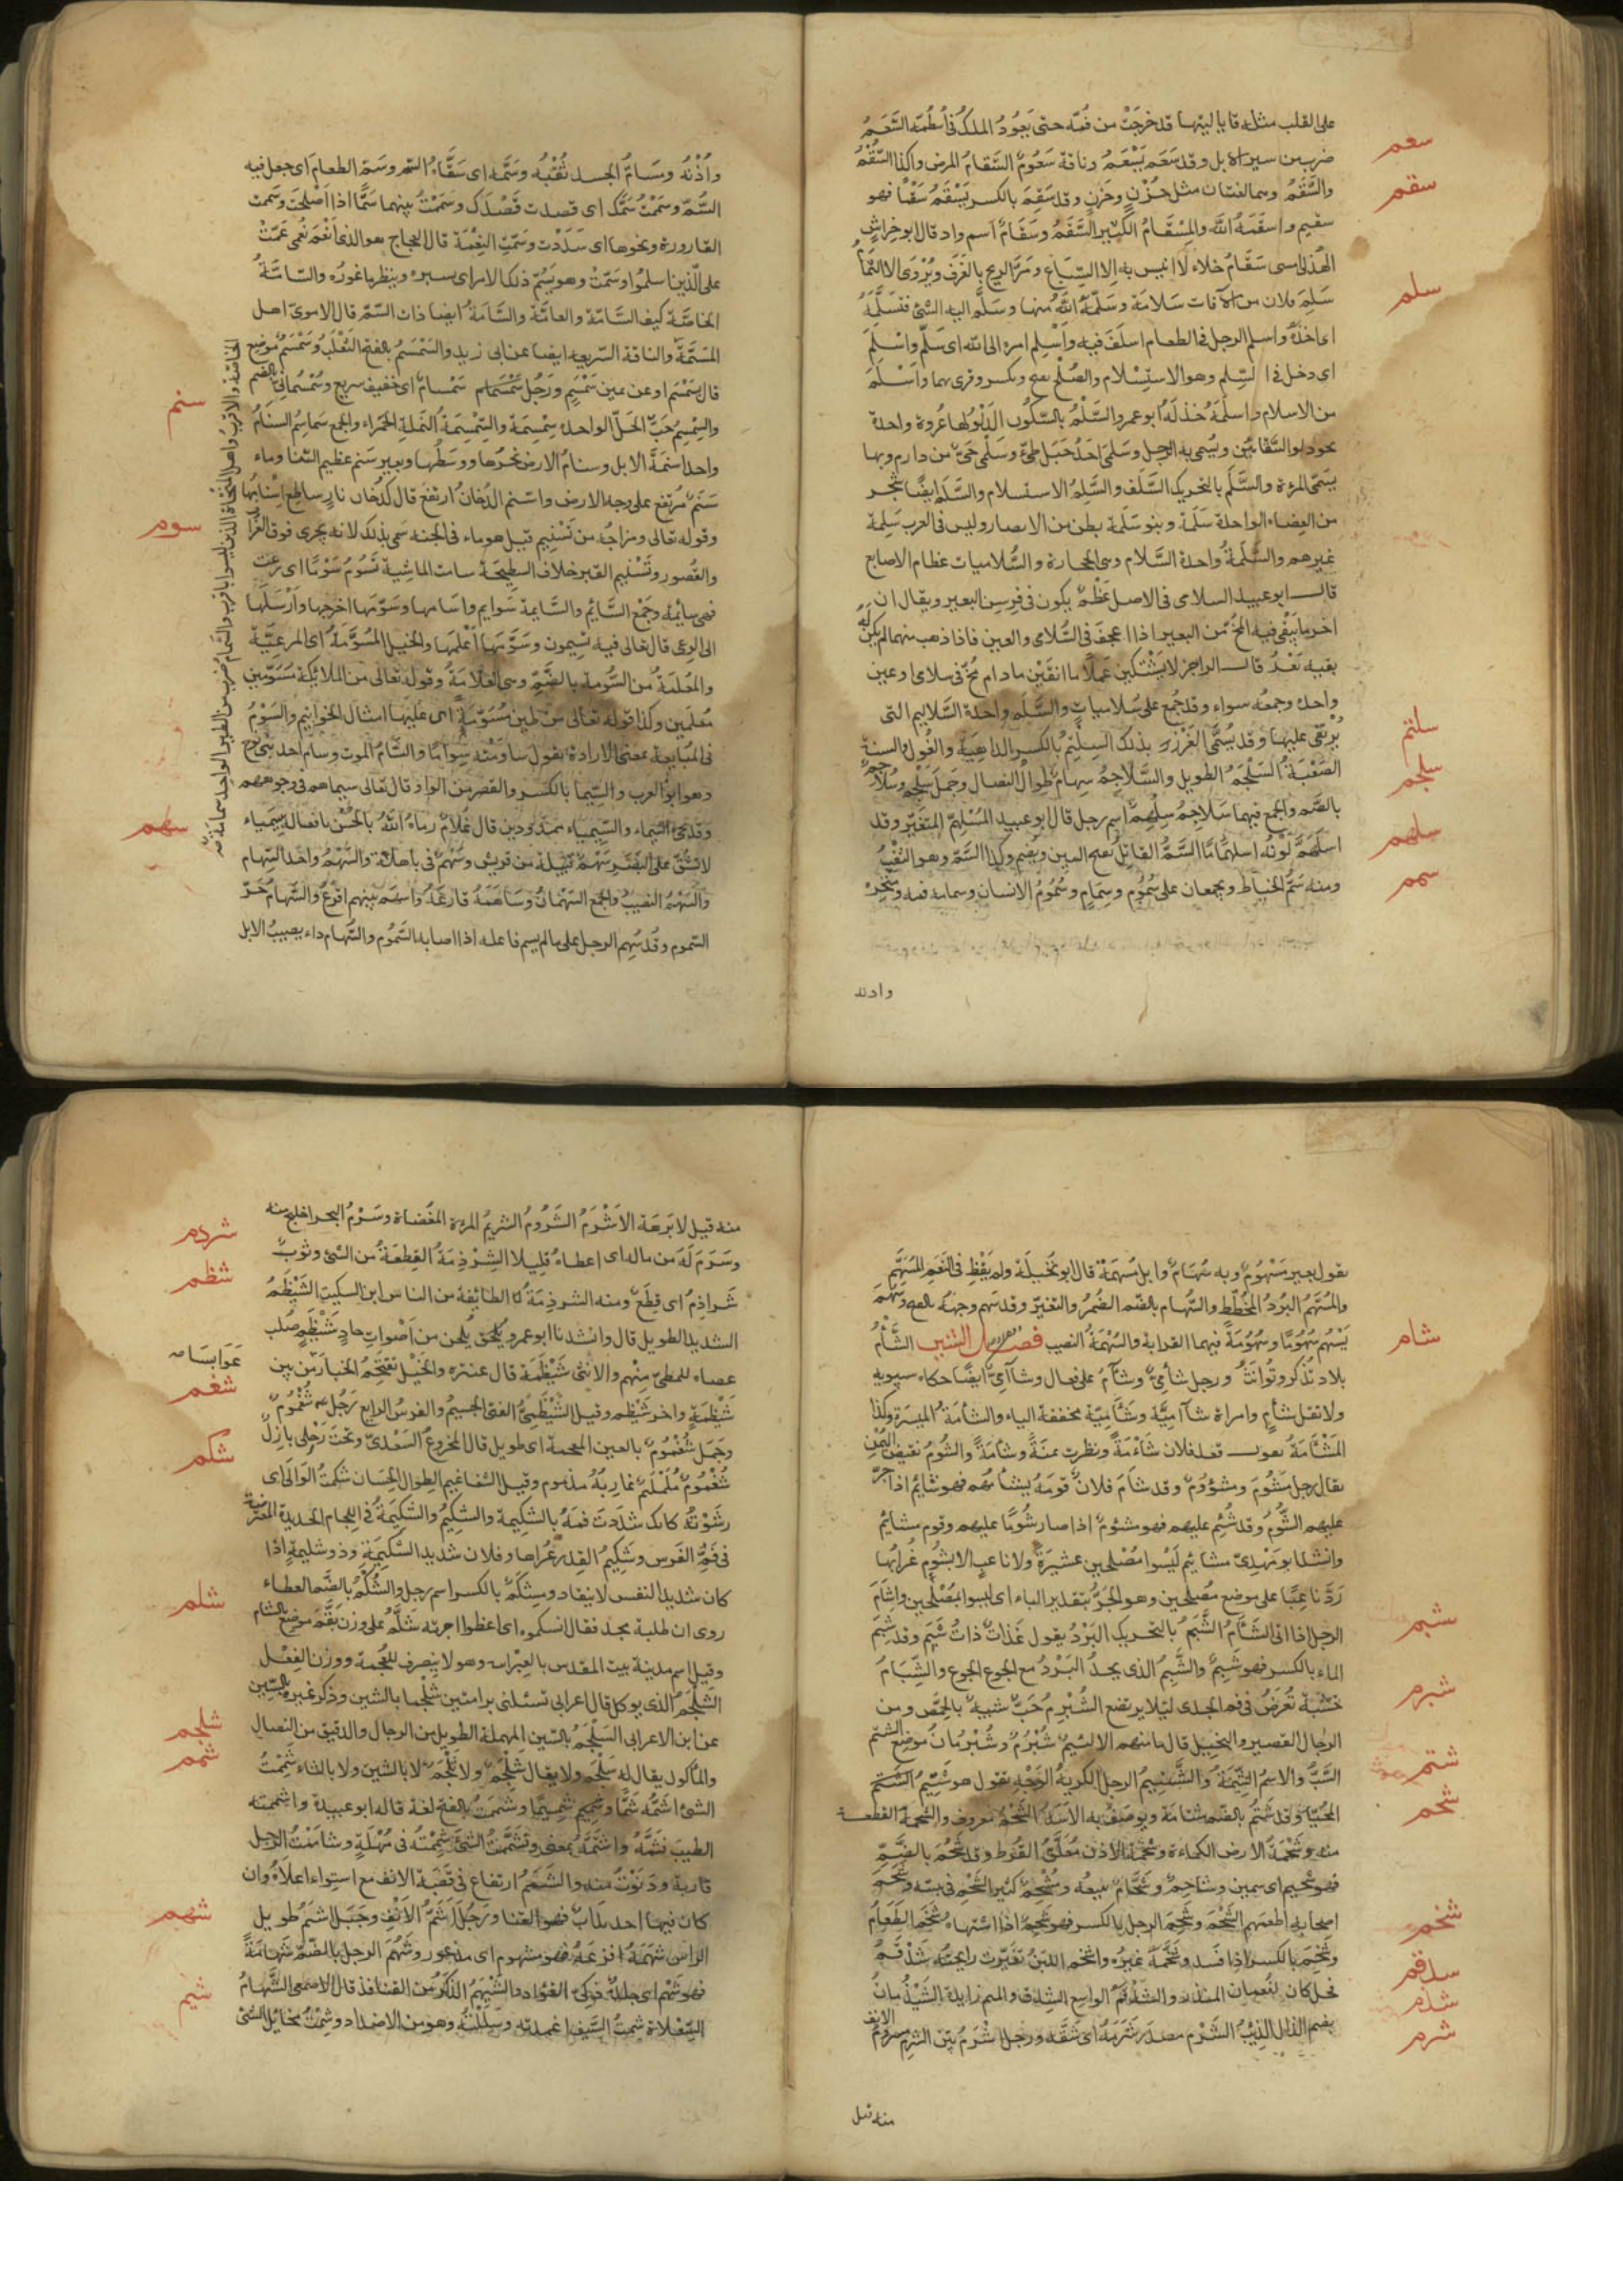 على القلب مثله قايا ليتها قد خرجَتْ من فُمّه حتى يَعُودُ الملكُ في أُسْطُمّه السَّعَمُ
سعم
ضرب من سير الابل وقد سَعَم يَسْعَمُ وناقة سَعُومٌ السَّقامُ المرض وكذا السُّقْمُ
سقم
والسَّقَمُ وهما لغتان مثل حُزْنٍ وحَزَنٍ وقد سَقِمَ بالكسر يَسْقَمُ سَقَمًا فهو
سقيم واسقَمَهُ اللّٰه والمِسْقامُ الكثير السَّقَمُ وسَقَامٌ اسم واد قال ابو خِراشٍ
الهذلى امسى سَقَامُ خلاء لا انيس به الا السِّبَاع ومَرَّ الريح بالغَرَفِ ويُرْوَى الا الثُّمَامُ
سلم
سَلِمَ فلان من الآفات سَلامَة وسَلَّمَهُ اللّٰهُ منها وسَلَّم اليه الشئ فتسَلَّمَهُ
اى اخذهُ واسلم الرجل فى الطعام اسلَفَ فيه واَسْلم امره الى اللّٰه اى سَلَّم واسْلَمَ
اى دخل فى السِّلم وهو الاستِسْلام والصُّلْح بفتح ويكسر وقرئ بهما واَسْلَمَ
من الاسلام واسلَمَهُ خذلَهُ ابو عمرو السَّلْمُ بالسّكُون الدّلْوُ لها عُروة واحدة
نحو دلو السَّقّائين ويُسمى به الرجل وسَلمى احَدُ جَبَلَى طَىّء وسَلْمَى حَىٌّ من دارم وبها
يسَمّى المرءة والسَّلَم بالتحريك السَّلَف والسَّلَمُ الاستسلام والسَّلَمُ ايضًا شجر
من العِضاه الواحدة سَلَمَة وبنو سَلَمة بطن من الانصار وليس فى العرب سَلِمة
غيرهم والسَّلِمَةُ واحدة السَّلام وهى الحجارة والسُّلاميات عظام الاصابع
قال ابو عبيد السلامى فى الاصل عَظْمٌ يكون فى فِرسِن البعير ويقال ان
اخر ما يَبْقى فيه المُخّ من البعير اذا اعجفَ فى السُّلامى والعين فاذا ذهب منهما لم يكن له
بقيه بَعْدُ قال الراجز لا يَشْتكين عَملًا ما انقَيْن مادام مُخّ فى سلامى او عين
واحدة وجمعُه سواء وقد جُمِع على سُلاميات والسُّلَّم واحدة السَّلاليم التى
سلتم
يُرْتقى عليها وقد يُسَمَّى الغَرْزُ بذلك السِّلْتِمُ بالكسر الداهِيَة والغُول والسنة
سلجم
الصَّعْبَةُ السَّلْجَمُ الطويل والسَّلاجِمُ سِهامٌ طِوالُ النصال وجَمَل سَلْجم وسُلاجمٌ
بالضم والجمع فيهما سَلاجِمُ سِلْهِمٌ اسم رجل قال ابو عبيد المُسْلهِمُّ المتغيّر وقد
سلهم
اسلَهَمَّ لَوْنُه اسلهِمَامًا السَّمُّ القاتِلُ بفتح السين ويضم وكذا السَّمّ وهو الثَّقْبُ
سمم
ومنه سَمُّ الخياط ويجمعان على سُمُوم وسِمَامٍ وسُمُومُ الانسان وسمامه فمه ومَنْخِرُه
واذنه
واُذُنُه وسَامُّ الجسد ثُقْبُه وسَمَّه اى سَقَاهُ السّم وسَمّ الطعامَ اى جعل فيه
السَّمّ وسَمَمْتُ سَمَّك اى قصدت قَصْدَك وسَمَمْتُ بينهما سَمًّا اذا اصْلَحتَ وسَمَمت
القارورة ونحوها اى سَدَدْت وسَمَّتِ النِعْمَة قال العجاج هو الذى اَنْعَمَ نُعمى عَمَّتْ
على الّذين اسلمُوا وسَمَّتْ وهو يَسُمّ ذلك الامر اى يسبره وينظر ما غورُه والسّامّةُ
الخاصّة كيف السَّامّة والعامَّة والسّامّةُ ايضا ذات السّمّ قال الاموىّ اهل
المَسَمَّةُ والناقة السّريعه ايضا عن ابى زيد والسَمْسَمُ بالفتح الثعْلَبُ وسَمْسَمٌ موضع
قال سَمْسَم او عن يمين سَمْسَمٍ ورَجُل سَمْسَام اى خفيف سريع وسُمْسُمانىّ بالضم
سنم
والسِمْسِمُ حَبُّ الحَلّ الواحدة سِمْسِمَة والسِّمْسِمَةُ النّملة الحَمْراء والجمع سَماسِمُ السنَامُ
واحد اسْنمةَ الابل وسنامُ الارض نحرُها ووسَطُها وبعير سَنم عظيم السّنام وماء
سَنَمٌ مُرتفع على وجه الارض واسْنم الدُخانُ ارتفعَ قال كدُخان نارٍ ساطع اِسْنامُها
سوم
وقوله تعالى ومزاجُه من تَسْنيم قيل هو ماء فى الجنه سُمى بذلك لانه يجرى فوق الغُرَف
والقُصور وتَسْنيم القبر خلاف السطِيحَة سامت الماشِية تَسُومُ سَوْمًا اى رعَتْ
فهى سائمة وجَمْع السَّائم والسَّايمة سَوايم واسامها وسَوّمها اخرجها وارْسَلها
الى الرعى قال تعالى فيه تسِيمون وسَوَّمَها اَعْلمها والخيل المُسَوَّمَةُ اى المرعيّة
والمعْلمَةُ من السُّومة بالضَّمّ وهى العلامَةُ وقوله تعالى من الملائكة مُسَوّمين
مُعلمين وكذا قوله تعالى من طين مُسَوّمة اى عَليها امثال الخواتيم والسَوْمُ
فى المُبَايعة بمعنى الارادة تقول ساومْته سِوامًا والسّامُ الموت وسام احد بَنى نوح
وهو ابو العرب والسِّيما بالكسر والقصر من الواو قال تعالى سيماهم فى وجوههم
سهم
وقد يجئ السّيماء والسّيمياء ممدودين قال غلامٌ رماهُ اللّٰهُ بالحُسْن يافعًا له سِيمياء
لا تشُقّ على البَصَر سَهْمٌ قبيلة من قريش وسَهْمٌ فى باهلة والسَّهْمُ واحد السِّهام
والسَّهْمُ النصيبُ والجمع السّهْمانُ وسَاهَمَهُ قارعَهُ واسهَمَ بينهم اقْرَعَ والسَّهامُ حَرّ
السّموم وقد سُهِم الرجل على ما لم يسم فاعله اذا اصابه السَّمُوم والسُّهام داء يصيب الابل
يقول بعير مَسْهُومٌ وبه سُهَامٌ وابل مُسهمَة قال ابو نخيلة ولم يَقِظِ فى النَعَمِ المُسَهَّمِ
والمُسَهَّمُ البُرْدُ المُخَطَّط والسُّهام بالضم الضُمرُ والتغيّر وقد سَهم وجهُهُ بالفتح وسَهُمَ
شام
يَسْهُم سُهُومًا وسُهُومَةً فيهما القرابة والسُهْمَةُ النصيب فصل الشين الشَّأمُ
بلاد تُذَكّر وتُؤنّثُ ورجل شأمىٌّ وشآمٌ على فعال وشآمىٌّ ايضًا حكاه سيبويه
ولا تقل شأم وامراة شآميَّة وشَآمِيَة مخففة الياء والشأمَةُ الميسَرة وكذا
المَشْأمَةُ تقول قعد فلان شَأمةً ونظرت يمنَةً وشأمَةً والشُومُ نقيض اليُمْن
يقال رجل مَشُوم ومشؤومٌ وقد شأم فلانٌ قومَهُ يشْأمُهُم فهو شائم اذا جرَّ
عليهم الشُّوم وقد شُئِم عليهم فهو مشؤمٌ اذا صار شُومًا عليهم وقوم مشائيم
وانشد ابو مَهْدِىّ مشائيم لَيْسُوا مُصْلحين عشيرَةً ولا ناعبٍ الا بشُومٍ غُرابُها
رَدَّ ناعبًا على موضع مُصلحين وهو الجَرّ بتقدير الباء اى ليسوا بمُصْلحين واشأمَ
شبم
الرجل اذا اتى الشَّأمَ الشَّبَمُ بالتحريك البَرْدُ يقول غَداةٌ ذاتُ شَبَم وقد شَبِمَ
الماء بالكسر فهو شَبِمٌ والشَّبِمُ الذى يجدُ البَرْدَ مع الجوع والشِّبَامُ
شبرم
خشَبَة تُعرَضُ فى فم الجدى لئلا يرتضع الشُّبْرُم حَبٌّ شبيهٌ بالحِمّص ومن
الرجال القصير والبخيل قال ما منهم الا لئيمٌ شُبْرُمٌ وشُبْرُمان موضع الشتم
شتم
السَّبُّ والاسمُ الشّتيمَةُ والشَّتيمُ الرجل الكريهُ الوَجْهِ يقول هو شتيم
شحم
المُحَيّا وقد شَتُم بالضم شتامة ويوصَفُ به الاَسَدُ الشَّحْمُ معروف والشحمة القطعة
منه وشَحْمَةُ الارض الكَماءة وشَحْمَةُ الاُذُن مُعَلَّقُ القُرط وقد شَحُمَ بالضَّم
فهو شَحيم اى سمين وشاحِمٌ وشَحّامٌ يبيعُه ومُشْحِمٌ كثير الشَّحْم فى بيته وشَحَم
شخم
اصحابه اطعَمهم الشَّحْمَ وشَحِمَ الرجل بالكسر فهو شَحِمٌ اذا اشتهاه شَخَم الطَعامُ
وشَخِمَ بالكسر اذا فسَد وشَخَّمَهُ غيرُه واشخم اللبَنُ تغيّرت رايحتُه شَدْقَمٌ
شدقم
فحل كان لنُعمان المنذر والشَدْقَمُ الواسع الشِدق والميم زايدة الشَيْذُمانُ
شذم
بضم الذال الذِئْبُ الشَّرْم مصدر شَرَمَهُ اى شَقّه ورجل اَشْرَمُ بَيّن الشَرَمِ مشرُومُ الانف
شرم
منه قيل
منه قيل لابرَهَة الاَشْرَمُ الشَّرُومُ الشريمُ المرءة المُفْضَاة وشَرْمُ البحر خليج منه
شردم
وشَرَمَ لَهُ من ماله اى اعطاهُ قليلا الشِرْذِمَةُ القِطعَةُ من الشئ وثوبٌ
شظم
شَراذِمُ اى قِطَع ومنه الشرذِمَةُ الطائفة من الناس ابن السكيت الشَّيْظَمُ
الشديد الطويل قال وانشدنا ابو عمرو يُلحْنَ من اَصْواتِ حادٍ شَيْظمٍ صُلب
عوابسًا صه
عصاه للمطىّ مِنْهم والانثى شَيْظَمَة قال عنتره والخَيْل تقتَحِمُ الخبارَ من بين
شغم
شَيْظَمَةٍ واخر شَيْظم وقيل الشَّيْظَمىُّ الفتى الجسيم والفرسُ الرايع رَجُل شُغْمُومٌ
وجَمَل شُغْمُومٌ بالعين المعجمة اى طويل قال المخزوعُ السَعْدىّ وتحتَ رَحْلى بازِلٌ
شكم
شُغْمُومٌ مُلَمْلَمٌ غارِبُهُ مدموم وقيل الشغاغيم الطِوال الحِسَان شكمتُ الوَالىَ اى
رشَوْتُه كانّك شدَدتَ فمَهُ بالشكيمة والشكيمُ والشكيمَةُ فى اللجام الحديدة المعترضة
فى فَمِ الفرس وشَكيمُ القِدر عُراها وفلان شديد الشّكيمَةِ وذو شكيمة اذا
كان شديد النفس لا ينقاد ومِشكَمٌ بالكسر اسم رجل والشُّكْمُ بالضّم العطاء
شلم
روى ان طلبة يحد فقال اشكموه اى اعطوا اجرته شَلَّمُ على وزن بَقَّمَ موضع بالشام
وقيل اسم مدينة بيت المقدس بالعِبْرانيه وهو لا ينصرف للعُجمة ووزن الفِعْل
الشَلْجَمُ الذى يوكل قال اعرابى تسئلنى برامتين شَلْجما بالشين وذكر غيره بالسّين
شلجم
عن ابن الاعرابى السَلْجَمُ بالسّين المهملة الطويل من الرجال والدقيق من النِصال
شمم
والمأكول يقال له سَلْجَم ولا يقال شَلْجَمٌ ولا ثَلْجَمٌ لا بالشين ولا بالثاء شمِمْتُ
الشئ اَشَمُّه شَمًّا وشَمِيمًا وشمَمْتُ بالفتح لغة قاله ابو عبيدة واشممته
الطيبَ فشَمَّهُ واشتَمَّهُ بمعنى وتشَمّمتُ الشئ شمِمْتُه فى مُهْلَةٍ وشامَمْتُ الرجل
قاربته ودَنَوْتُ منه والشَمَمُ ارتفاع فى قصَبَة الانف مع استواء اعلاهُ وان
شهم
كان فيها احديدابٌ فهو القنا ورَجُل اَشَمُّ الاَنْفِ وجَبَل اشمّ طويل
الراس شهَمَهُ افزعَهُ فهو مشهوم اى مذعور وشَهُمَ الرجل بالضمّ شَهامَةً
شيم
فهو شَهْمٌ اى جلد ذكىّ الفؤاد والشَيْهَمُ الذّكَرُ من القنافذ قال الاصمعى الشَّهامُ
السّعْلاة شِمتُ السَّيف اغمدته وسَلَلْتُه وهو من الاضداد وشِمْتُ مخايل الشئ